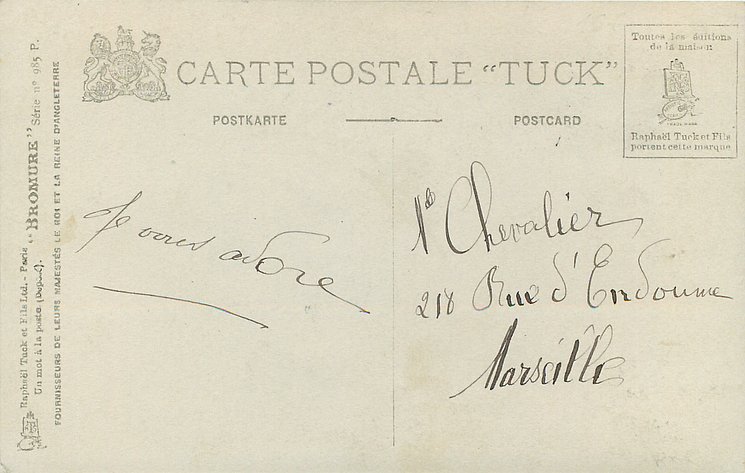 CARTE POSTALE "TUCK"
POSTKARTE
POSTCARD
Toutes les éditions
de la maison
Raphaël Tuck et Fils
portent cette marque
Je vous adore
Mle Chevalier
218 Rue d'Endoume
Marseille
Raphaël Tuck et Fils Ltd. - Paris "BROMURE" Série nº 985 P.
Un mot à la poste (Déposé).
FOURNISSEURS DE LEURS MAJESTÉS LE ROI ET LA REINE D'ANGLETERRE